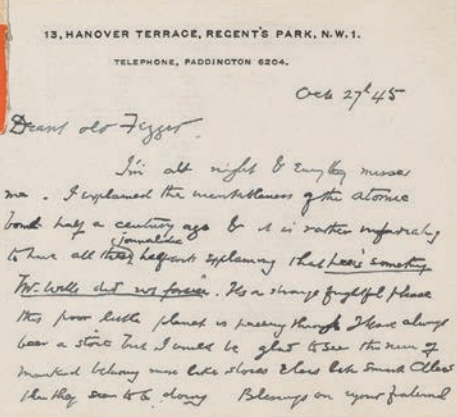 13, HANOVER TERRACE, REGENT'S PARK, N.W.1.
TELEPHONE, PADDINGTON 6204.
Oct 27th 45
Dearest old
I'm all right & misses
me. I explained the of the atomic
bomb half a century ago & it is rather infuriating
to have all these journalist explaining that here's something
Mr. Wells did not foresee. Its a strange frightful phase
this poor little planet is passing through I have always
been a stoic but I would be glad to see the men of
mankind behaving more like stoics & less like
than they seem to be doing Blessings on your